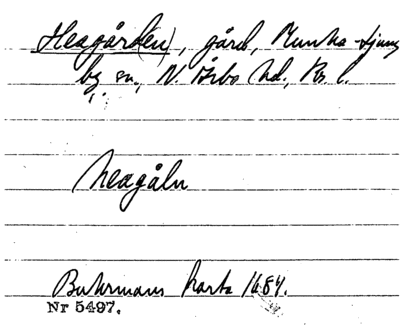 Heagård(en), gård, Munka-Ljung
by sn., N. Åsbo hd., Kr. l.
heagåln
Buhrmans karta 1684.
Nr 5497.